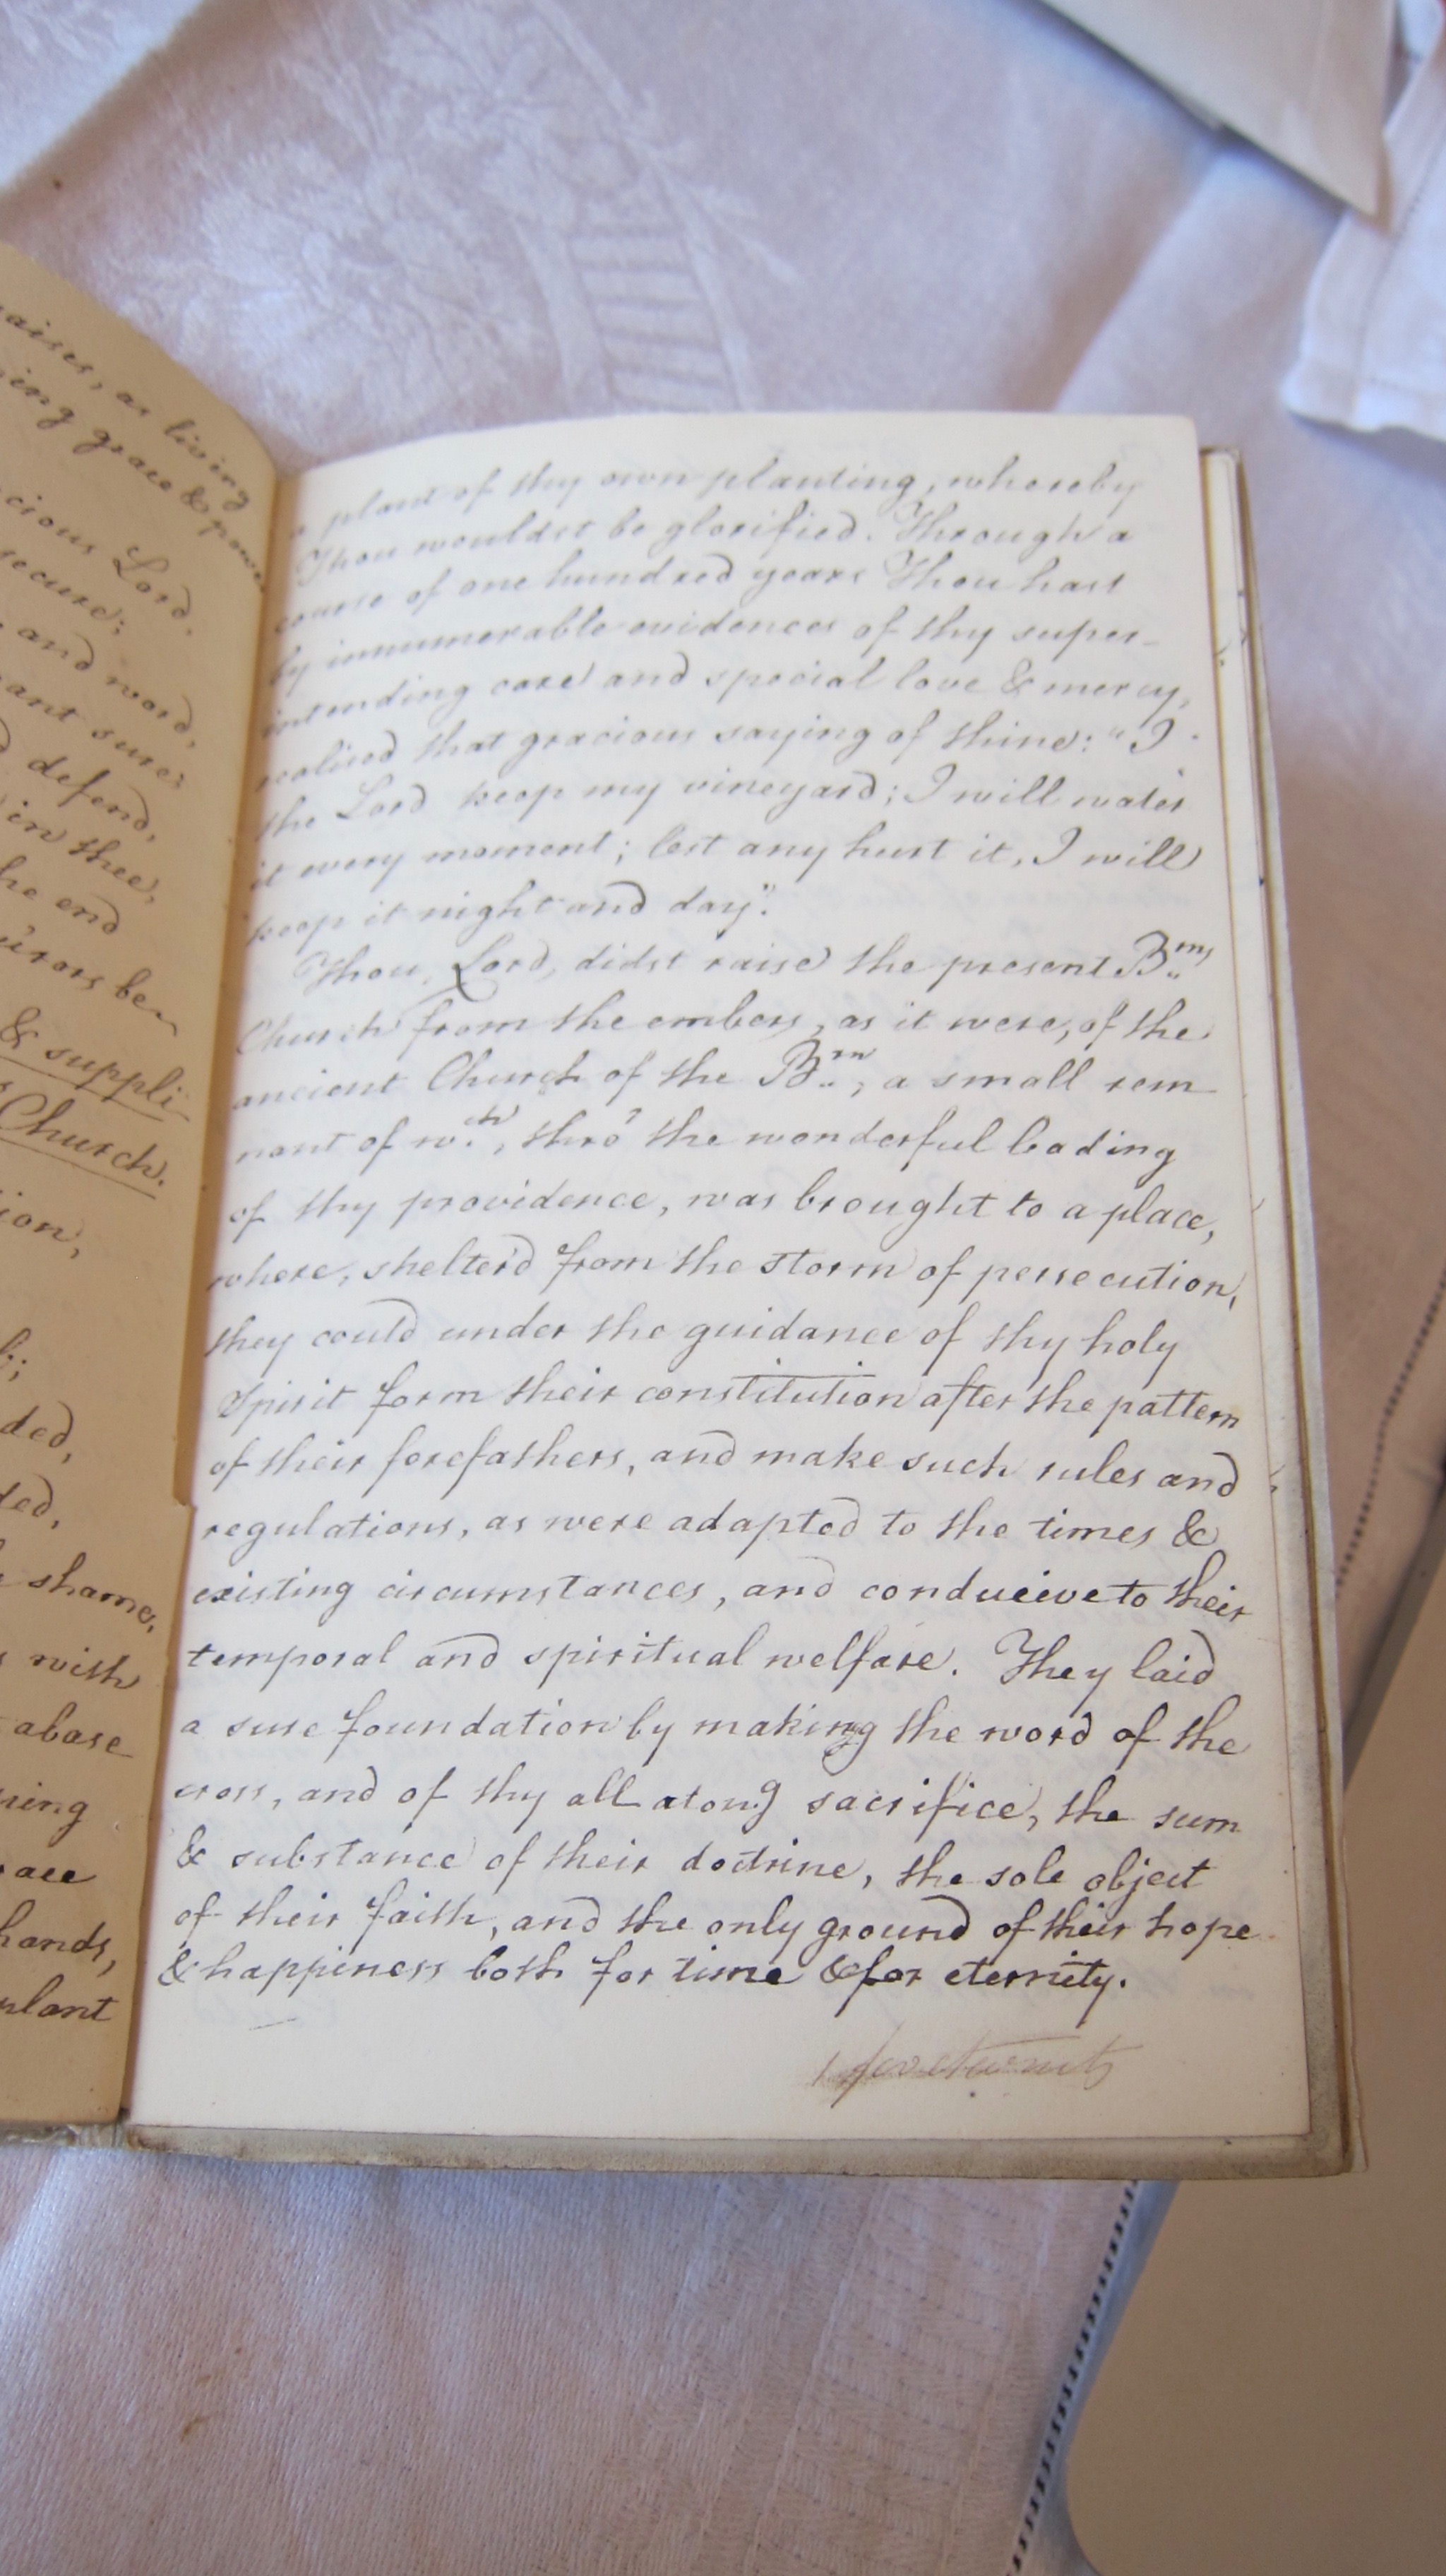 aises, as living
ing grace & power
cious Lord.
secure;
and word,
ant sure;
defend,
in thee,
he end
urors be
& suppli-
Church.
ion,
ded,
ded,
shame,
with
abase
ning
ace
hands,
plant
a plant of thy own planting, whereby
Thou wouldst be glorified. Through a
course of one hundred years Thou hast
by innumerable evidences of thy super-
intending care and special love & mercy,
realised that gracious saying of thine: "I
the Lord keep my vineyard; I will water
it every moment; lest any hurt it, I will
keep it night and day".
Thou, Lord, didst raise the present B:rns
Church from the embers, as it were, of the
ancient Church of the B:rn, a small rem
nant of w.ch, thro' the wonderful leading
of thy providence, was brought to a place,
where, shelter'd from the storm of persecution,
they could under the guidance of thy holy
Spirit form their constitution after the pattern
of their forefathers, and make such rules and
regulations, as were adapted to the times &
existing circumstances, and conducive to their
temporal and spiritual welfare. They laid
a sure foundation by making the word of the
cross, and of thy all atong sacrifice, the sum
& substance of their doctrine, the sole object
of their faith, and the only ground of their hope
& happiness both for time & for eternity.